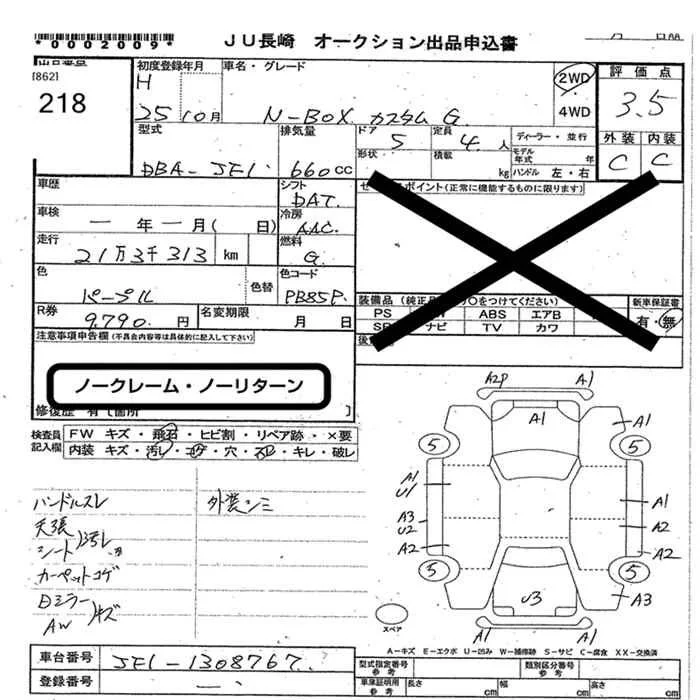 *0002009*
JU長崎 オークション出品申込書
出品番号 初度登録年月 車名・グレード 2WD 評価点
[862] H
218 25 10月 N-BOX カスタム G. 4WD 3.5
型式 排気量 ドア 5 定員 4 人 ディーラー・並行 外装 内装
形状 積載 kg モデル年式 年 C C
DBA-JF1. 660cc ハンドル 左・右
車歴 シフト DAT.
車検 ー年ー月( 日) 冷房 AAC.
走行 21万3千313 km 燃料 G.
色 パープル 色替 色コード PB85P.
R券 9,790. 円 名変期限 月 日
ポイント(正常に機能するものに限ります)
装備品 (純正品 ○をつけてください) 新車保証書
PS ABS エアB 有・無
SR ナビ TV カワ
注意事項申告欄(不具合内容等は具体的に記入して下さい)
ノークレーム・ノーリターン
修復歴 有〔箇所 〕
検査員 FW キズ・飛石・ヒビ割・リペア跡・×要
記入欄 内装 キズ・汚レ・コゲ・穴・スレ・キレ・破レ
ハンドルスレ 外装シミ
天張
シート 汚レ
カーペットコゲ
日ミラー
AW キズ
A2P A1
A1 A1
5 5
A1 U1 A1
A3 U2 A2
A2 A2
5 5
U3 A3
A1 A1
スペア
A-キズ E-エクボ U-凹み W-補修跡 S-サビ C-腐食 XX-交換済
車台番号 JF1-1308767.
登録番号 ー.
型式指定番号 参考 類別区分番号 参考
車庫証明用 参考 長さ cm 幅 cm 高さ cm